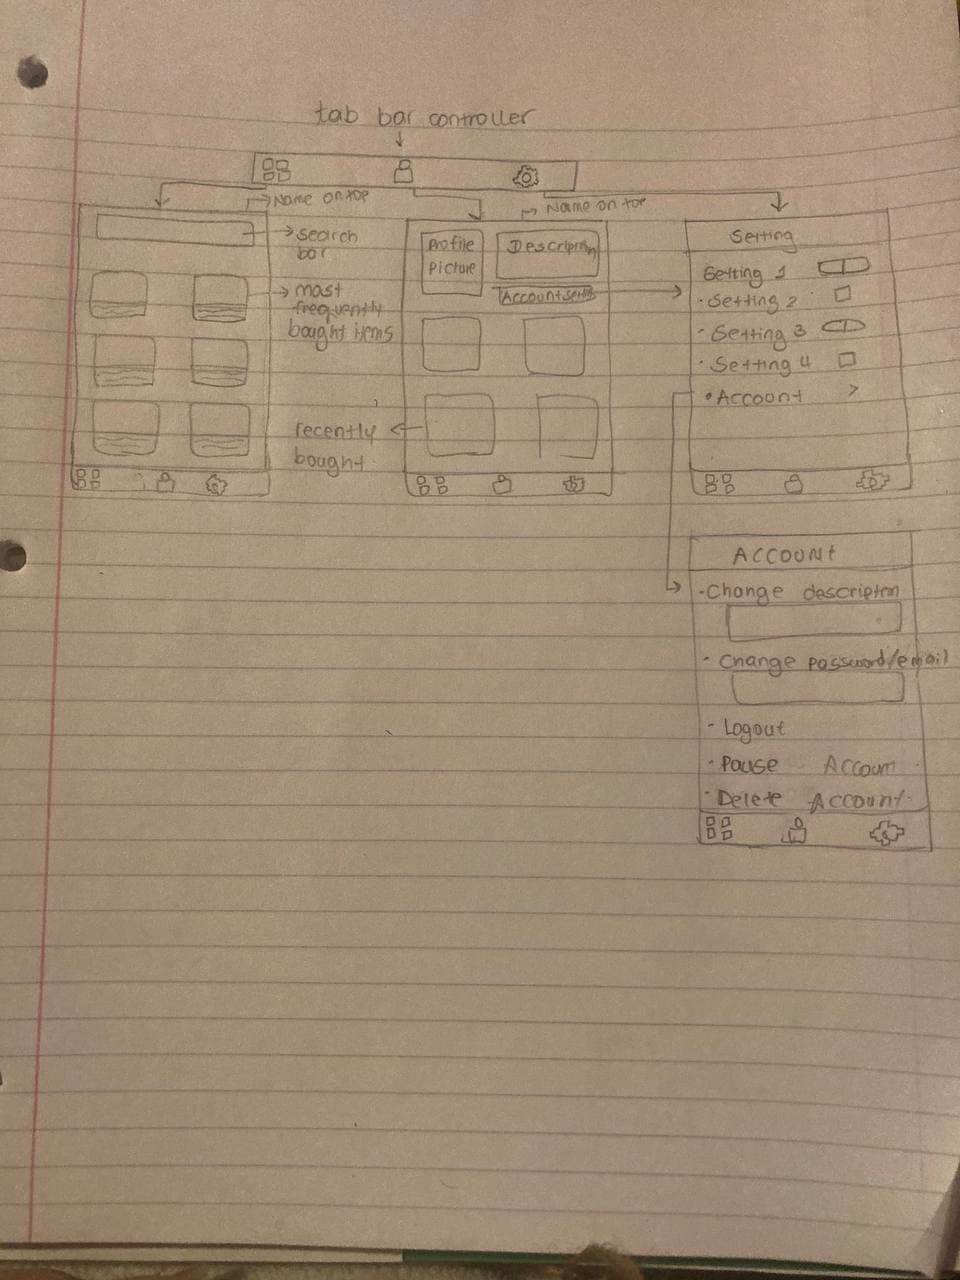 tab bar controller
Name on top
search
bar
most
frequently
bought items
recently
bought
Name on top
Profile
Picture
Description
Account
Setting
Setting 1
· Setting 2
· Setting 3
· Setting 4
• Account >
ACCOUNt
· Change description
· Change password/email
- Logout
· Pause Accoun
· Delete Account